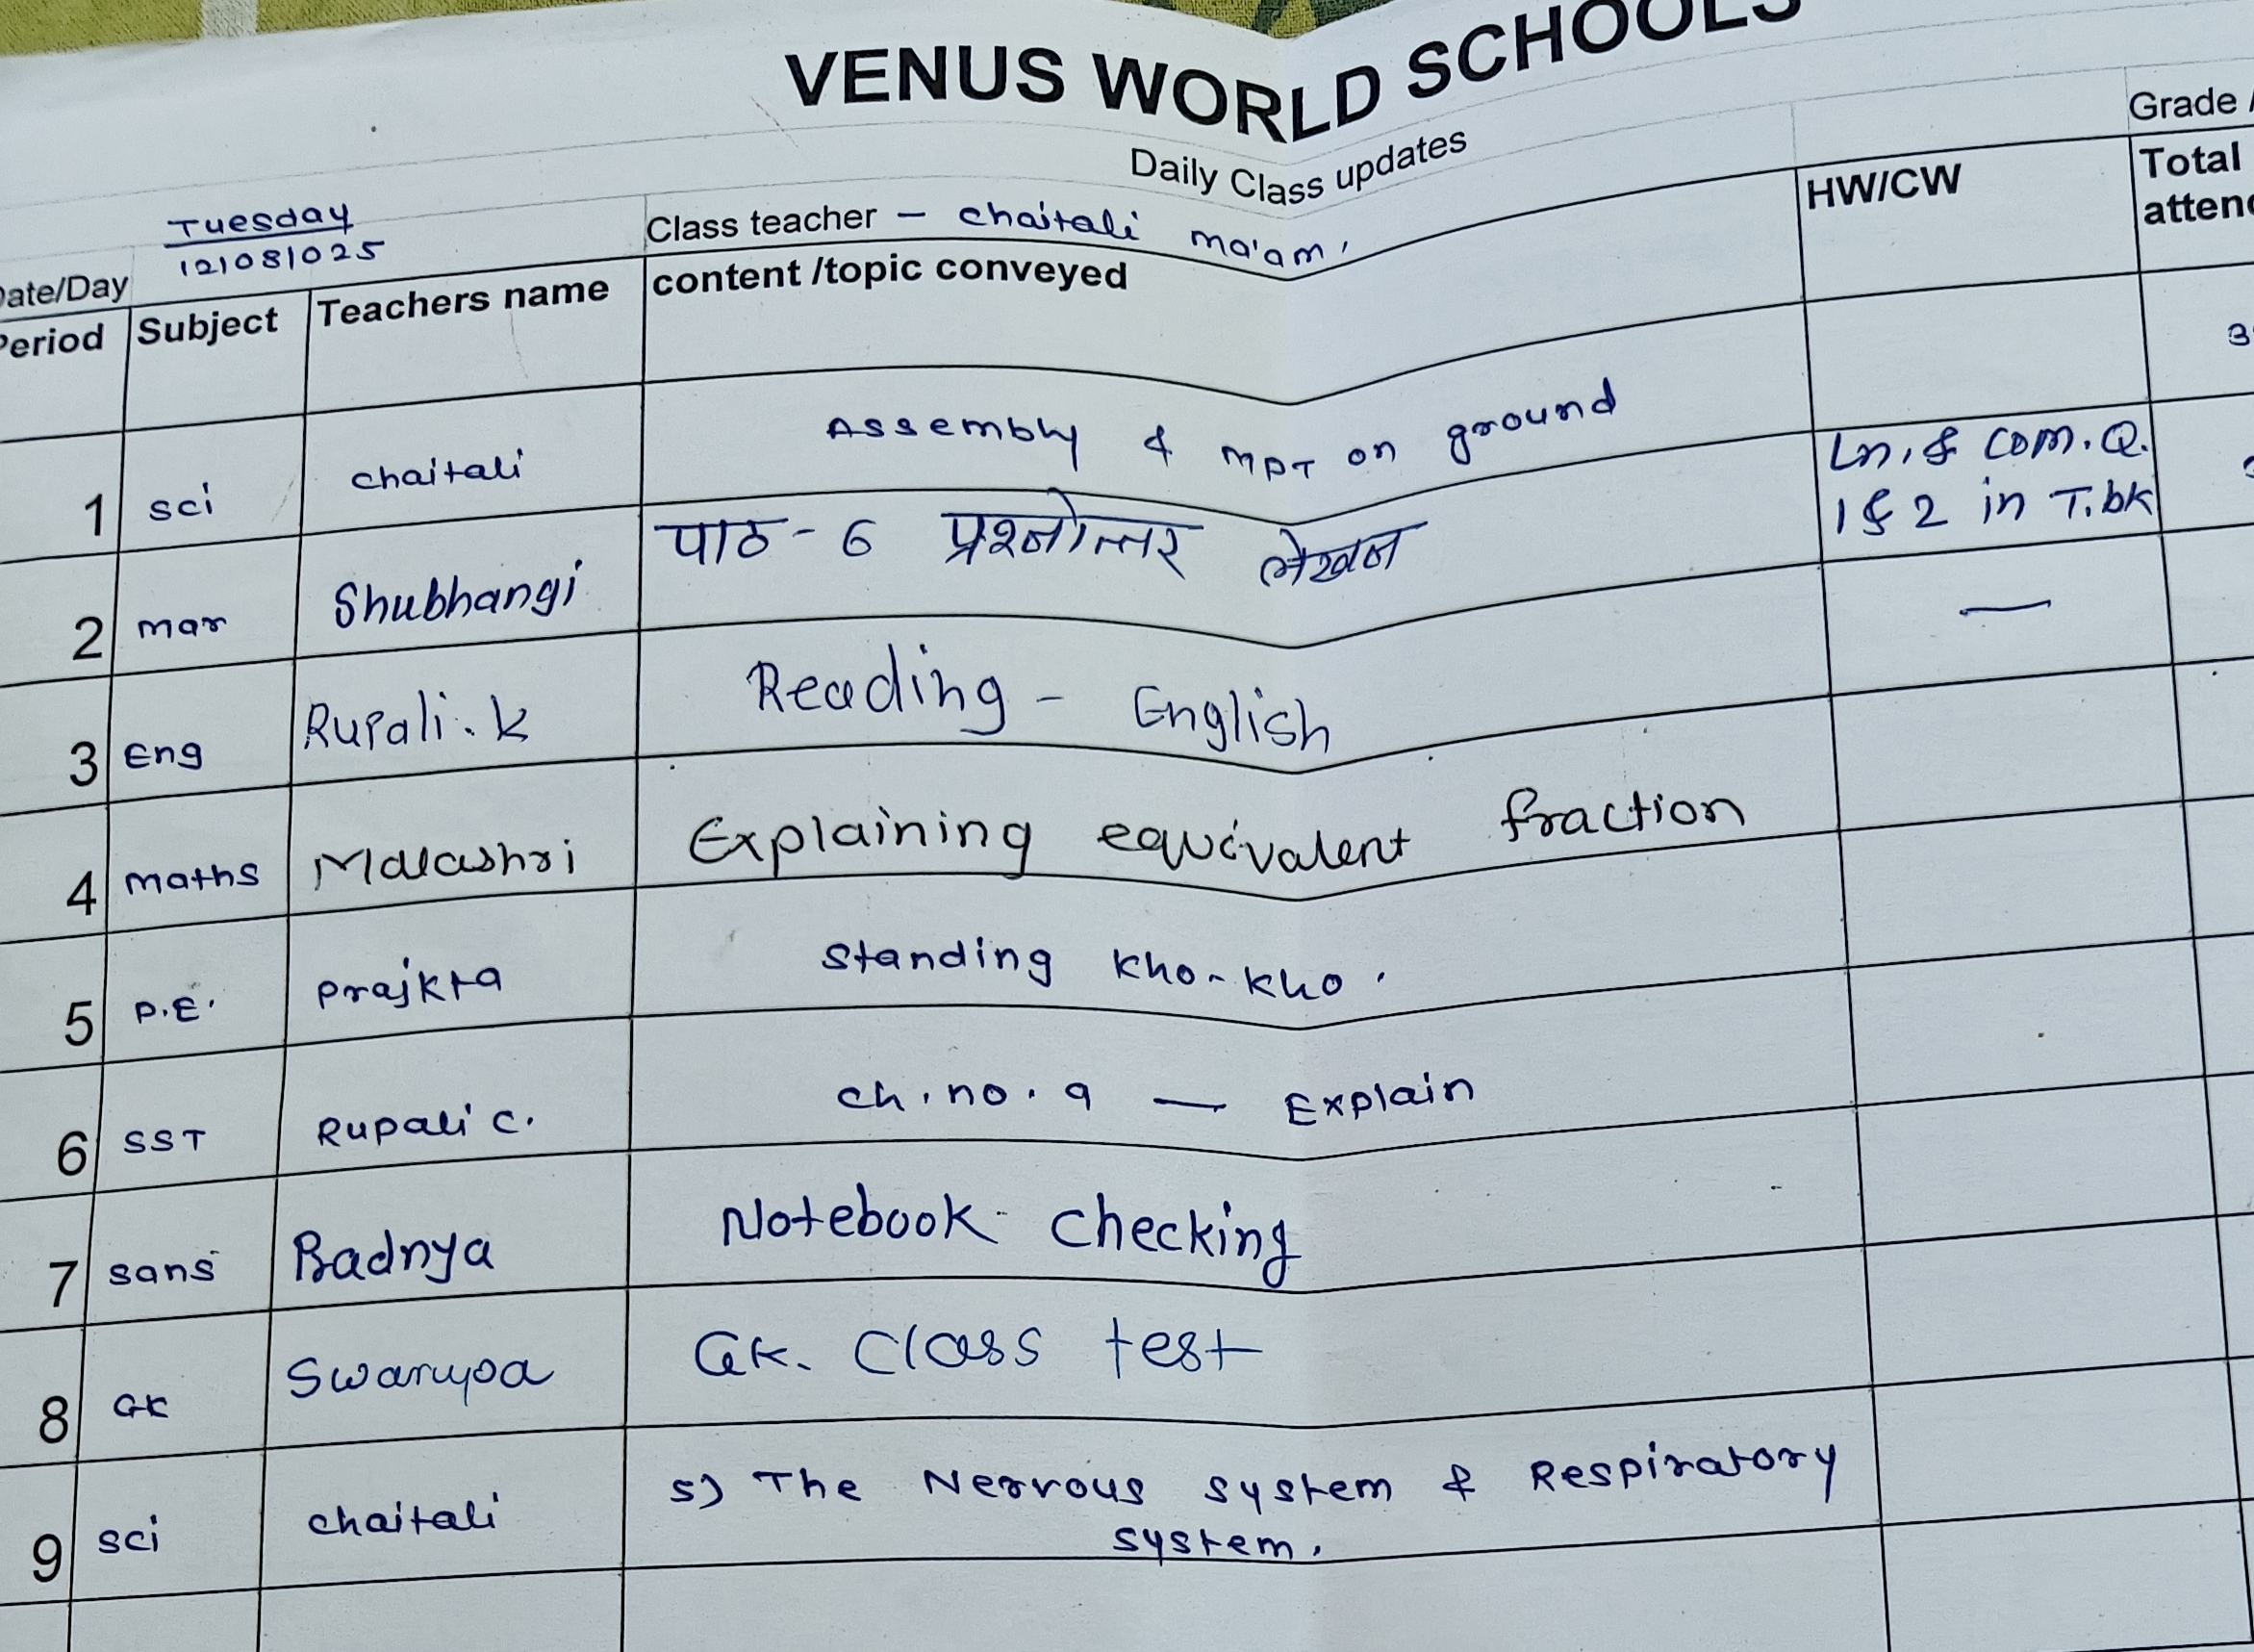 VENUS WORLD SCHOOLS
Daily Class updates
Grade
Date/Day Tuesday
12/08/025
Class teacher - chaitali ma'am.
Period Subject Teachers name content /topic conveyed HW/CW Total
1 sci chaitali Assembly & MPT on ground
2 mar Shubhangi पाठ - 6 प्रश्नोत्तर लेखन Ln. & com. Q.
1 & 2 in T.bk
3 Eng Rupali. k Reading - English —
4 maths Malashri Explaining equivalent fraction
5 P.E. Prajkta Standing kho-kho.
6 SST Rupali C. ch. no. 9 — Explain
7 sans Pradnya Notebook checking
8 GK Swarupa GK. Class test
9 sci chaitali 5) The Nervous system & Respiratory
system.